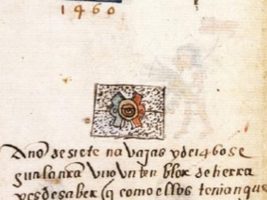 1460
Año de siete navajas y de 1460 se
gun la nr̃a vno vn tenblor de tierra
y es de saber q como ellos tenian que